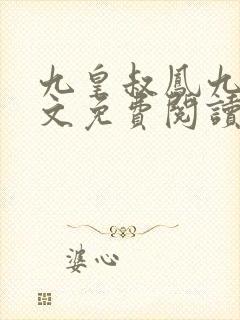 九皇叔鳳九
文免費閱讀
婆心